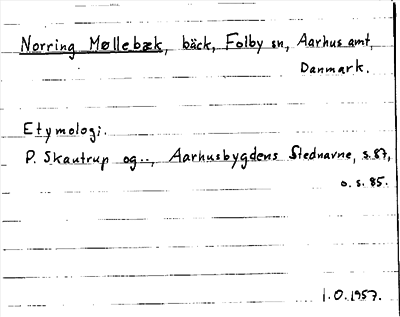 Norring Møllebæk, bäck, Folby sn, Aarhus amt,
Danmark.
Etymologi.
P. Skautrup og.., Aarhusbygdens Stednavne, s.87,
o. s. 85.
1.0.1957.